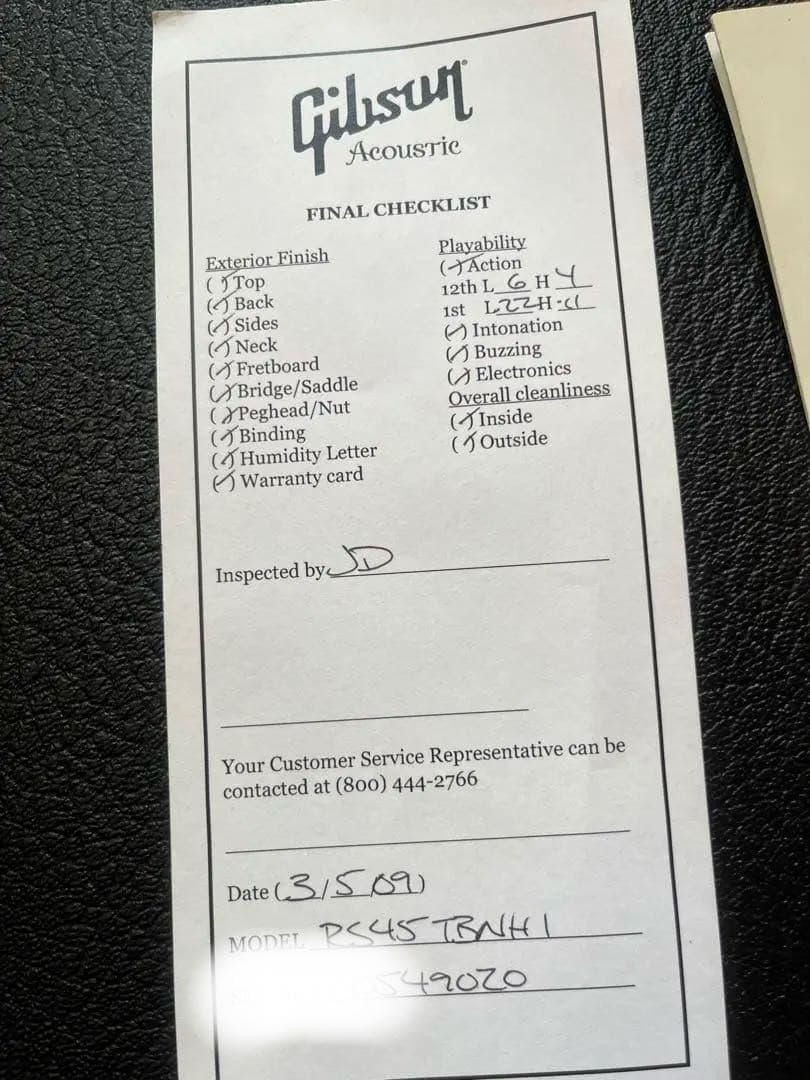 Gibson
Acoustic
FINAL CHECKLIST
Exterior Finish
(✓) Top
(✓) Back
(✓) Sides
(✓) Neck
(✓) Fretboard
(✓) Bridge/Saddle
(✓) Peghead/Nut
(✓) Binding
(✓) Humidity Letter
(✓) Warranty card
Playability
(✓) Action
12th L 6 H 4
1st L 22 H .11
(✓) Intonation
(✓) Buzzing
(✓) Electronics
Overall cleanliness
(✓) Inside
(✓) Outside
Inspected by JD
Your Customer Service Representative can be
contacted at (800) 444-2766
Date (3/5 09)
MODEL RS45TBNH1
549020